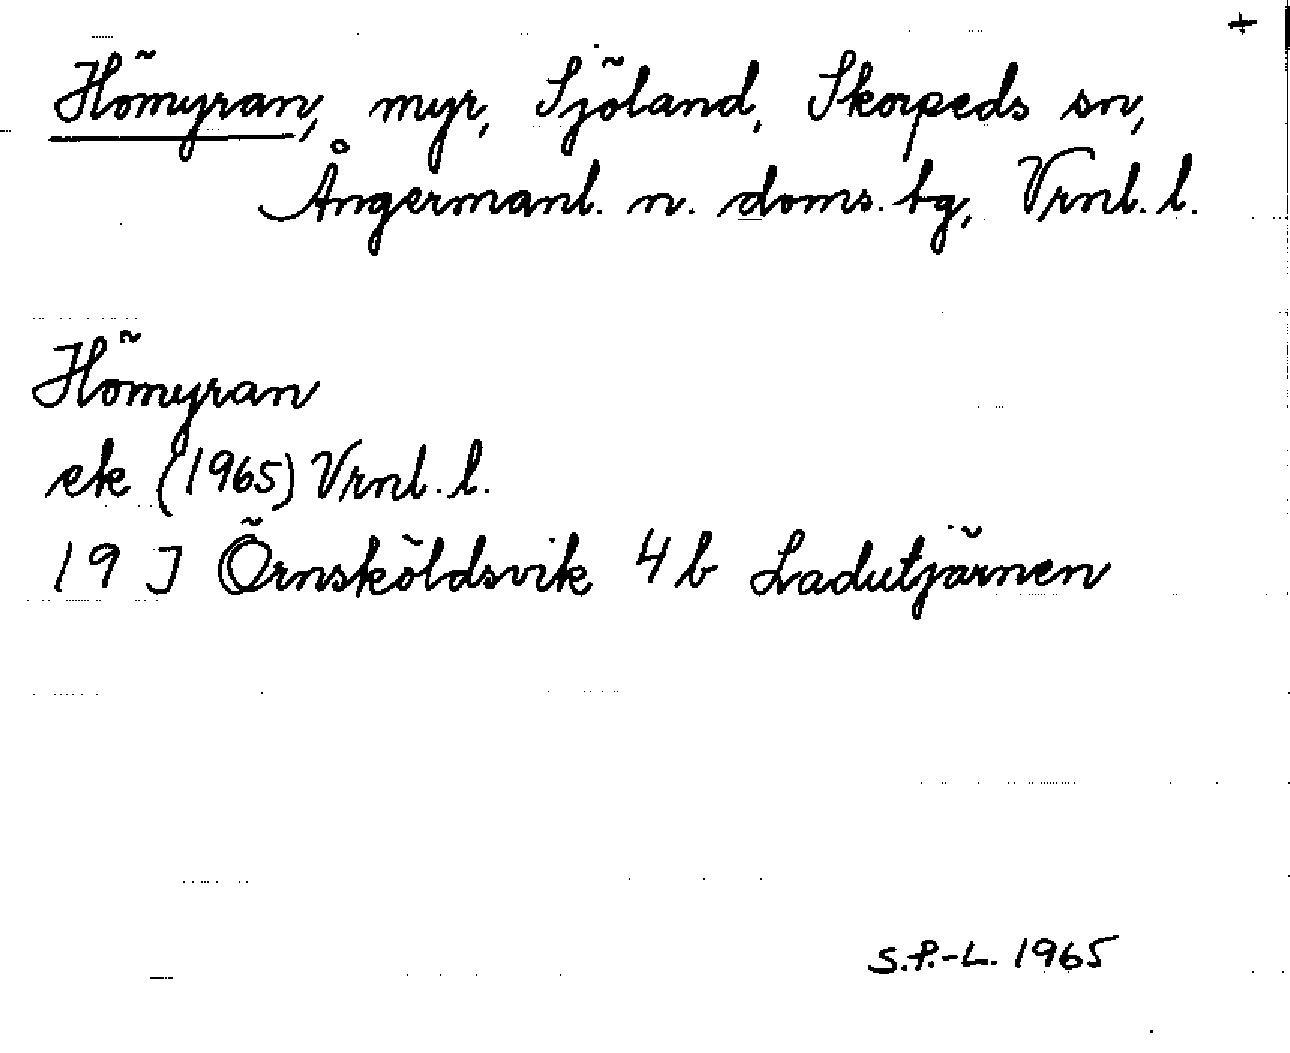 +
Hömyran, myr, Sjöland, Skorpeds sn,
Ångermanl. n. doms. tg, Vrnl. l.
Hömyran
ek (1965) Vrnl. l.
19 J Örnsköldsvik 4 b Ladutjärnen
S.P.-L. 1965